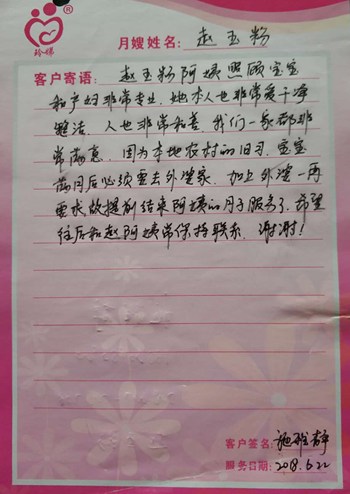 ®
玲娣
月嫂姓名: 赵玉粉
客户寄语: 赵玉粉阿姨照顾宝宝
和产妇非常专业,她本人也非常爱干净
整洁。人也非常和善,我们一家都非
常满意。因为本地农村的旧习,宝宝
满月后必须要去外婆家,加上外婆一再
要求故提前结束阿姨的月子服务了,希望
往后和赵阿姨常保持联系,谢谢!
客户签名: 施雅静
服务日期: 2018.6.22